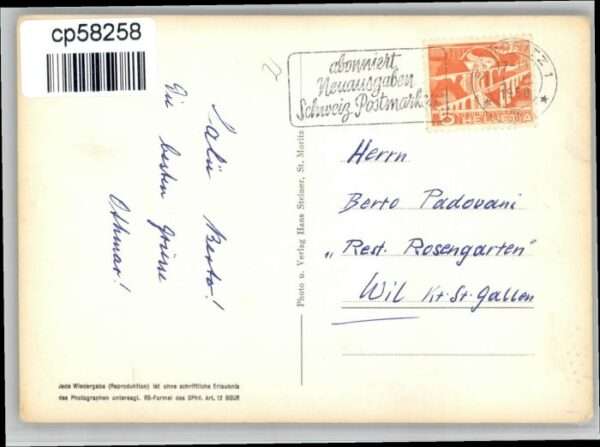 cp58258
abonniert
Neuausgaben
Schweiz. Postmarken
5 HELVETIA
Salü Berto!
Die besten Grüsse
Othmar!
Photo u. Verlag Hans Steiner, St. Moritz
Herrn
Berto Padovani
„Rest. Rosengarten"
Wil Kt. St. Gallen
Jede Wiedergabe (Reproduktion) ist ohne schriftliche Erlaubnis
des Photographen untersagt. RB-Formel des SPhV. Art. 12 BGUR